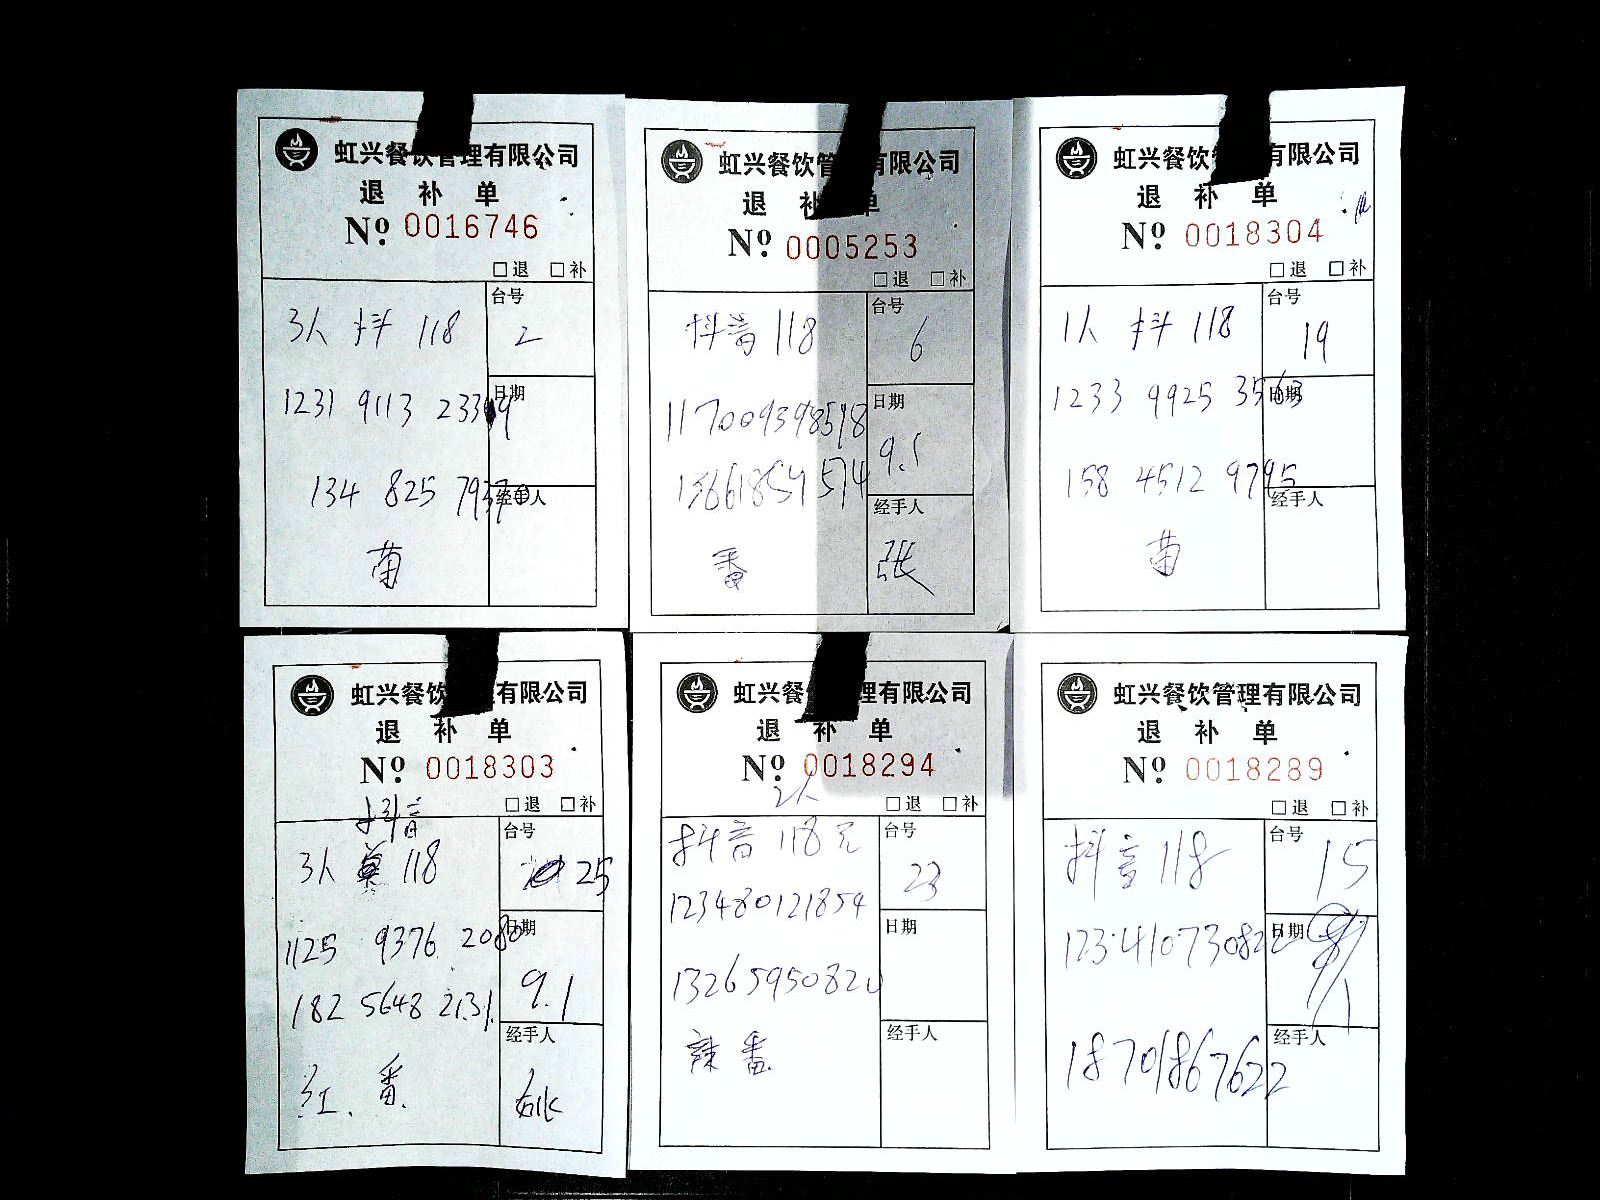 虹兴餐饮管理有限公司
退 补 单
Nº 0016746
□退 □补
3人 抖 118
台号
2
1231 9113 2339
日期
134 825 7937
经手人
菌
虹兴餐饮管 有限公司
退 补 单
Nº 0005253
□退 □补
抖音 118
台号
6
117009398518
日期
9.1
13661854574
经手人
番
张
虹兴餐饮 有限公司
退 补 单
Nº 0018304
□退 □补
1人 抖 118
台号
19
1233 9925 3563
日期
158 4512 9795
经手人
菌
虹兴餐饮 有限公司
退 补 单
Nº 0018303
□退 □补
抖音
3人 118
台号
25
1125 9376 2080
日期
9.1
182 5648 2131
经手人
红.番
虹兴餐 理有限公司
退 补 单
Nº 0018294
□退 □补
2人
抖音 118元
台号
23
123480121854
日期
13265950820
经手人
辣 番
虹兴餐饮管理有限公司
退 补 单
Nº 0018289
□退 □补
抖音 118
台号
15
123410730822
日期
经手人
18701867622